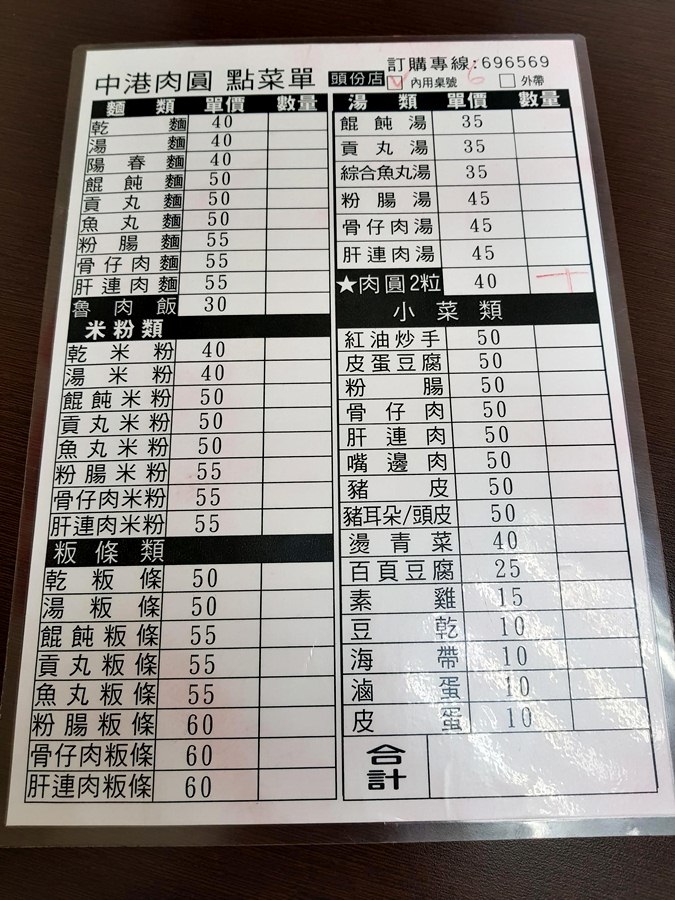 訂購專線:696569
中港肉圓 點菜單 頭份店 內用桌號 6 外帶
麵類 單價 數量
乾麵 40
湯麵 40
陽春麵 40
餛飩麵 50
貢丸麵 50
魚丸麵 50
粉腸麵 55
骨仔肉麵 55
肝連肉麵 55
魯肉飯 30
米粉類
乾米粉 40
湯米粉 40
餛飩米粉 50
貢丸米粉 50
魚丸米粉 50
粉腸米粉 55
骨仔肉米粉 55
肝連肉米粉 55
粄條類
乾粄條 50
湯粄條 50
餛飩粄條 55
貢丸粄條 55
魚丸粄條 55
粉腸粄條 60
骨仔肉粄條 60
肝連肉粄條 60
湯類 單價 數量
餛飩湯 35
貢丸湯 35
綜合魚丸湯 35
粉腸湯 45
骨仔肉湯 45
肝連肉湯 45
★肉圓2粒 40
小菜類
紅油炒手 50
皮蛋豆腐 50
粉腸 50
骨仔肉 50
肝連肉 50
嘴邊肉 50
豬皮 50
豬耳朵/頭皮 50
燙青菜 40
百頁豆腐 25
素雞 15
豆乾 10
海帶 10
滷蛋 10
皮蛋 10
合計